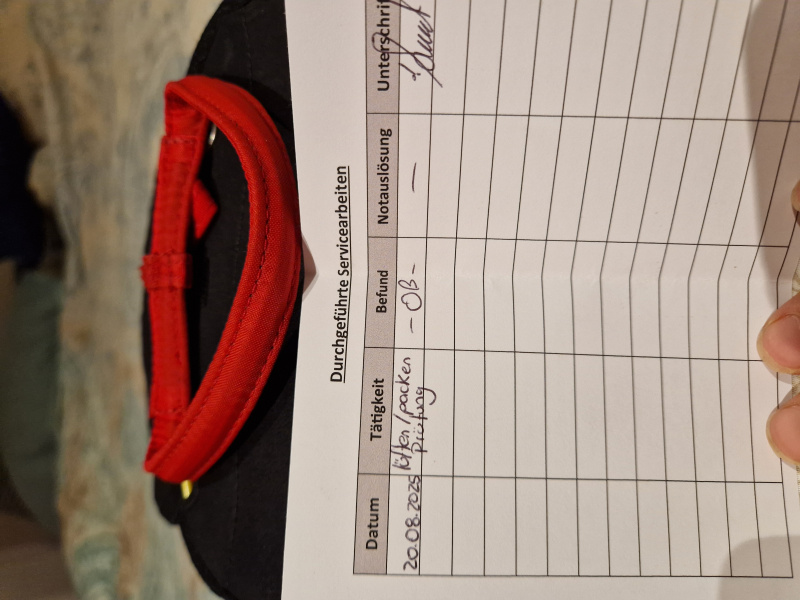 Durchgeführte Servicearbeiten
Datum Tätigkeit Befund Notauslösung Unterschrif
20.08.2025 lüften/packen - OB - —
Prüfung